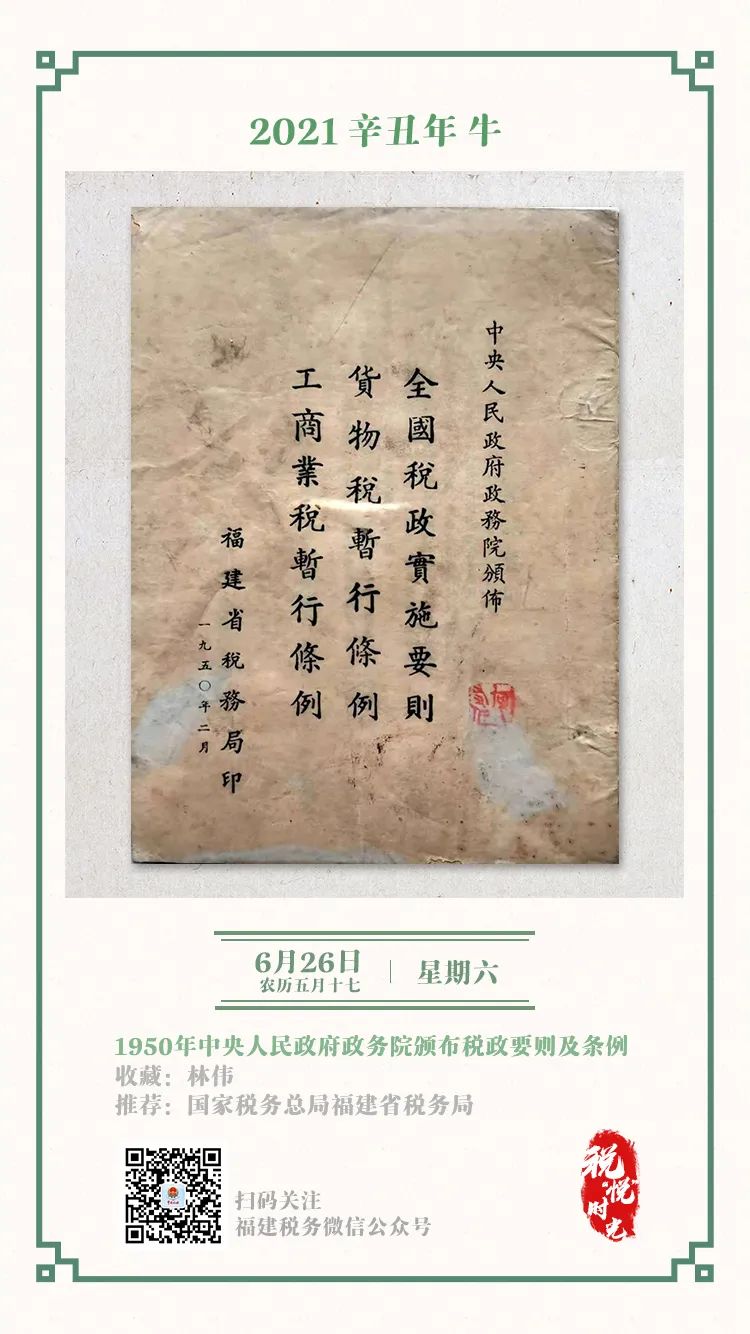 2021 辛丑年 牛
中央人民政府政務院頒佈
全國稅政實施要則
貨物稅暫行條例
工商業稅暫行條例
福建省稅務局印
一九五〇年二月
6月26日
农历五月十七
星期六
1950年中央人民政府政务院颁布税政要则及条例
收藏：林伟
推荐：国家税务总局福建省税务局
扫码关注
福建税务微信公众号
税
“悦”
时
光